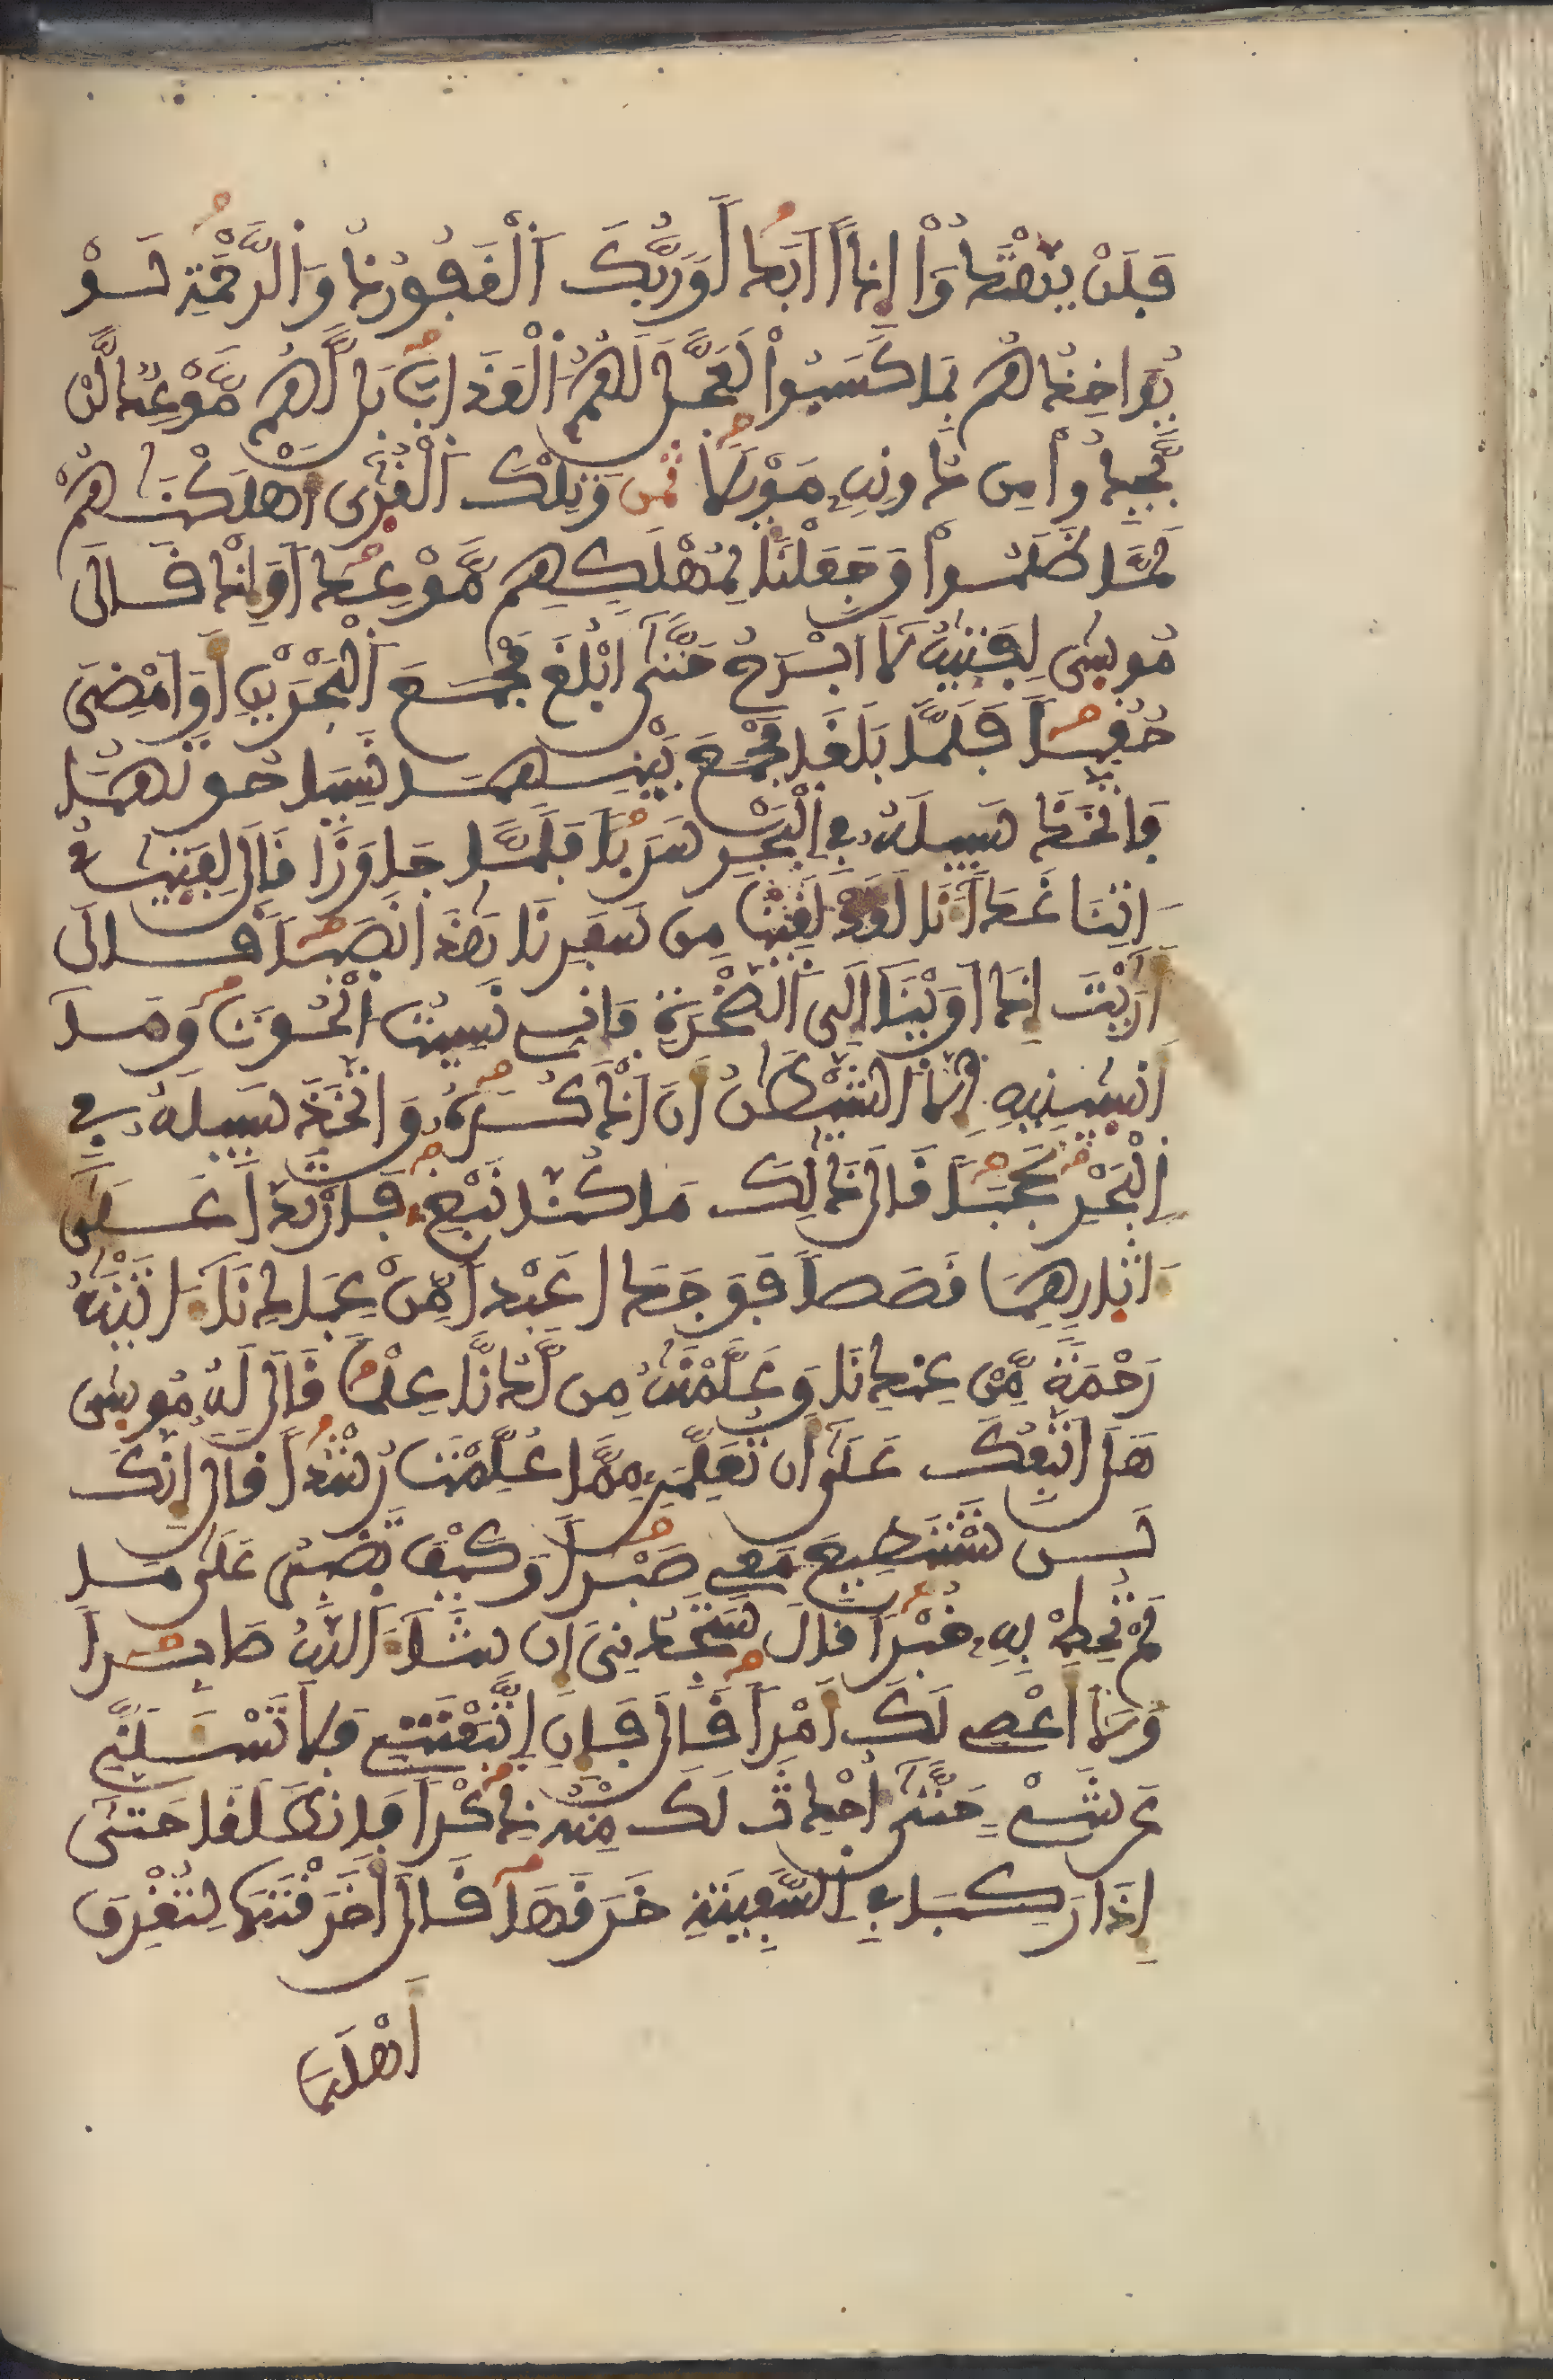 فَلَنْ يَّهْتَدُوٓاْ إِذاً اَبَداً وَرَبُّكَ اَ۬لْغَفُورُ ذُو اُ۬لرَّحْمَةِ لَوْ
يُوَاخِذُهُم بِمَا كَسَبُواْ لَعَجَّلَ لَهُمُ اُ۬لْعَذَابَ بَل لَّهُم مَّوْعِدٌ لَّنْ
يَّجِدُواْ مِن دُونِهِۦ مَوْئِلاً ثمن وَتِلْكَ اَ۬لْقُرَىٰٓ أَهْلَكْنَٰهُمْ
لَمَّا ظَلَمُواْ وَجَعَلْنَا لِمُهْلَكِهِم مَّوْعِداً وَإِذْ قَالَ
مُوسَىٰ لِفَتَيٰهُ لَآ أَبْرَحُ حَتَّىٰٓ أَبْلُغَ مَجْمَعَ اَ۬لْبَحْرَيْنِ أَوَ اَمْضِيَ
حُقُباً فَلَمَّا بَلَغَا مَجْمَعَ بَيْنِهِمَا نَسِيَا حُوتَهُمَا
فَاتَّخَذَ سَبِيلَهُۥ فِي اِ۬لْبَحْرِ سَرَباً فَلَمَّا جَاوَزَا قَالَ لِفَتَيٰهُ
ءَاتِنَا غَدَآءَنَا لَقَدْ لَقِينَا مِن سَفَرِنَا هَٰذَا نَصَباً قَالَ
أَرَٰٓيْتَ إِذَ اَوَيْنَآ إِلَى اَ۬لصَّخْرَةِ فَإِنِّي نَسِيتُ اُ۬لْحُوتَ وَمَآ
أَنسَىٰنِيهِ إِلَّا اَ۬لشَّيْطَٰنُ أَنَ اَذْكُرَهُۥ وَاتَّخَذَ سَبِيلَهُۥ فِي
اِ۬لْبَحْرِ عَجَباً قَالَ ذَٰلِكَ مَا كُنَّا نَبْغِۦ فَارْتَدَّا عَلَىٰٓ
ءَاثَارِهِمَا قَصَصاً فَوَجَدَا عَبْداً مِّنْ عِبَادِنَآ ءَاتَيْنَٰهُ
رَحْمَةً مِّنْ عِندِنَا وَعَلَّمْنَٰهُ مِن لَّدُنَّا عِلْماً قَالَ لَهُۥ مُوسَىٰ
هَلَ اَتَّبِعُكَ عَلَىٰٓ أَن تُعَلِّمَنِۦ مِمَّا عُلِّمْتَ رُشْداً قَالَ إِنَّكَ
لَن تَسْتَطِيعَ مَعِي صَبْراً وَكَيْفَ تَصْبِرُ عَلَىٰ مَا
لَمْ تُحِطْ بِهِۦ خُبْراً قَالَ سَتَجِدُنِيَ إِن شَآءَ اَ۬للَّهُ صَابِراً
وَلَآ أَعْصِي لَكَ أَمْراً قَالَ فَإِنِ اِ۪تَّبَعْتَنِي فَلَا تَسْـَٔلَنِّي
عَن شَيْءٍ حَتَّىٰٓ أُحْدِثَ لَكَ مِنْهُ ذِكْراً فَانطَلَقَا حَتَّىٰٓ
إِذَا رَكِبَا فِي اِ۬لسَّفِينَةِ خَرَقَهَا قَالَ أَخَرَقْتَهَا لِتُغْرِقَ
أَهْلَهَا